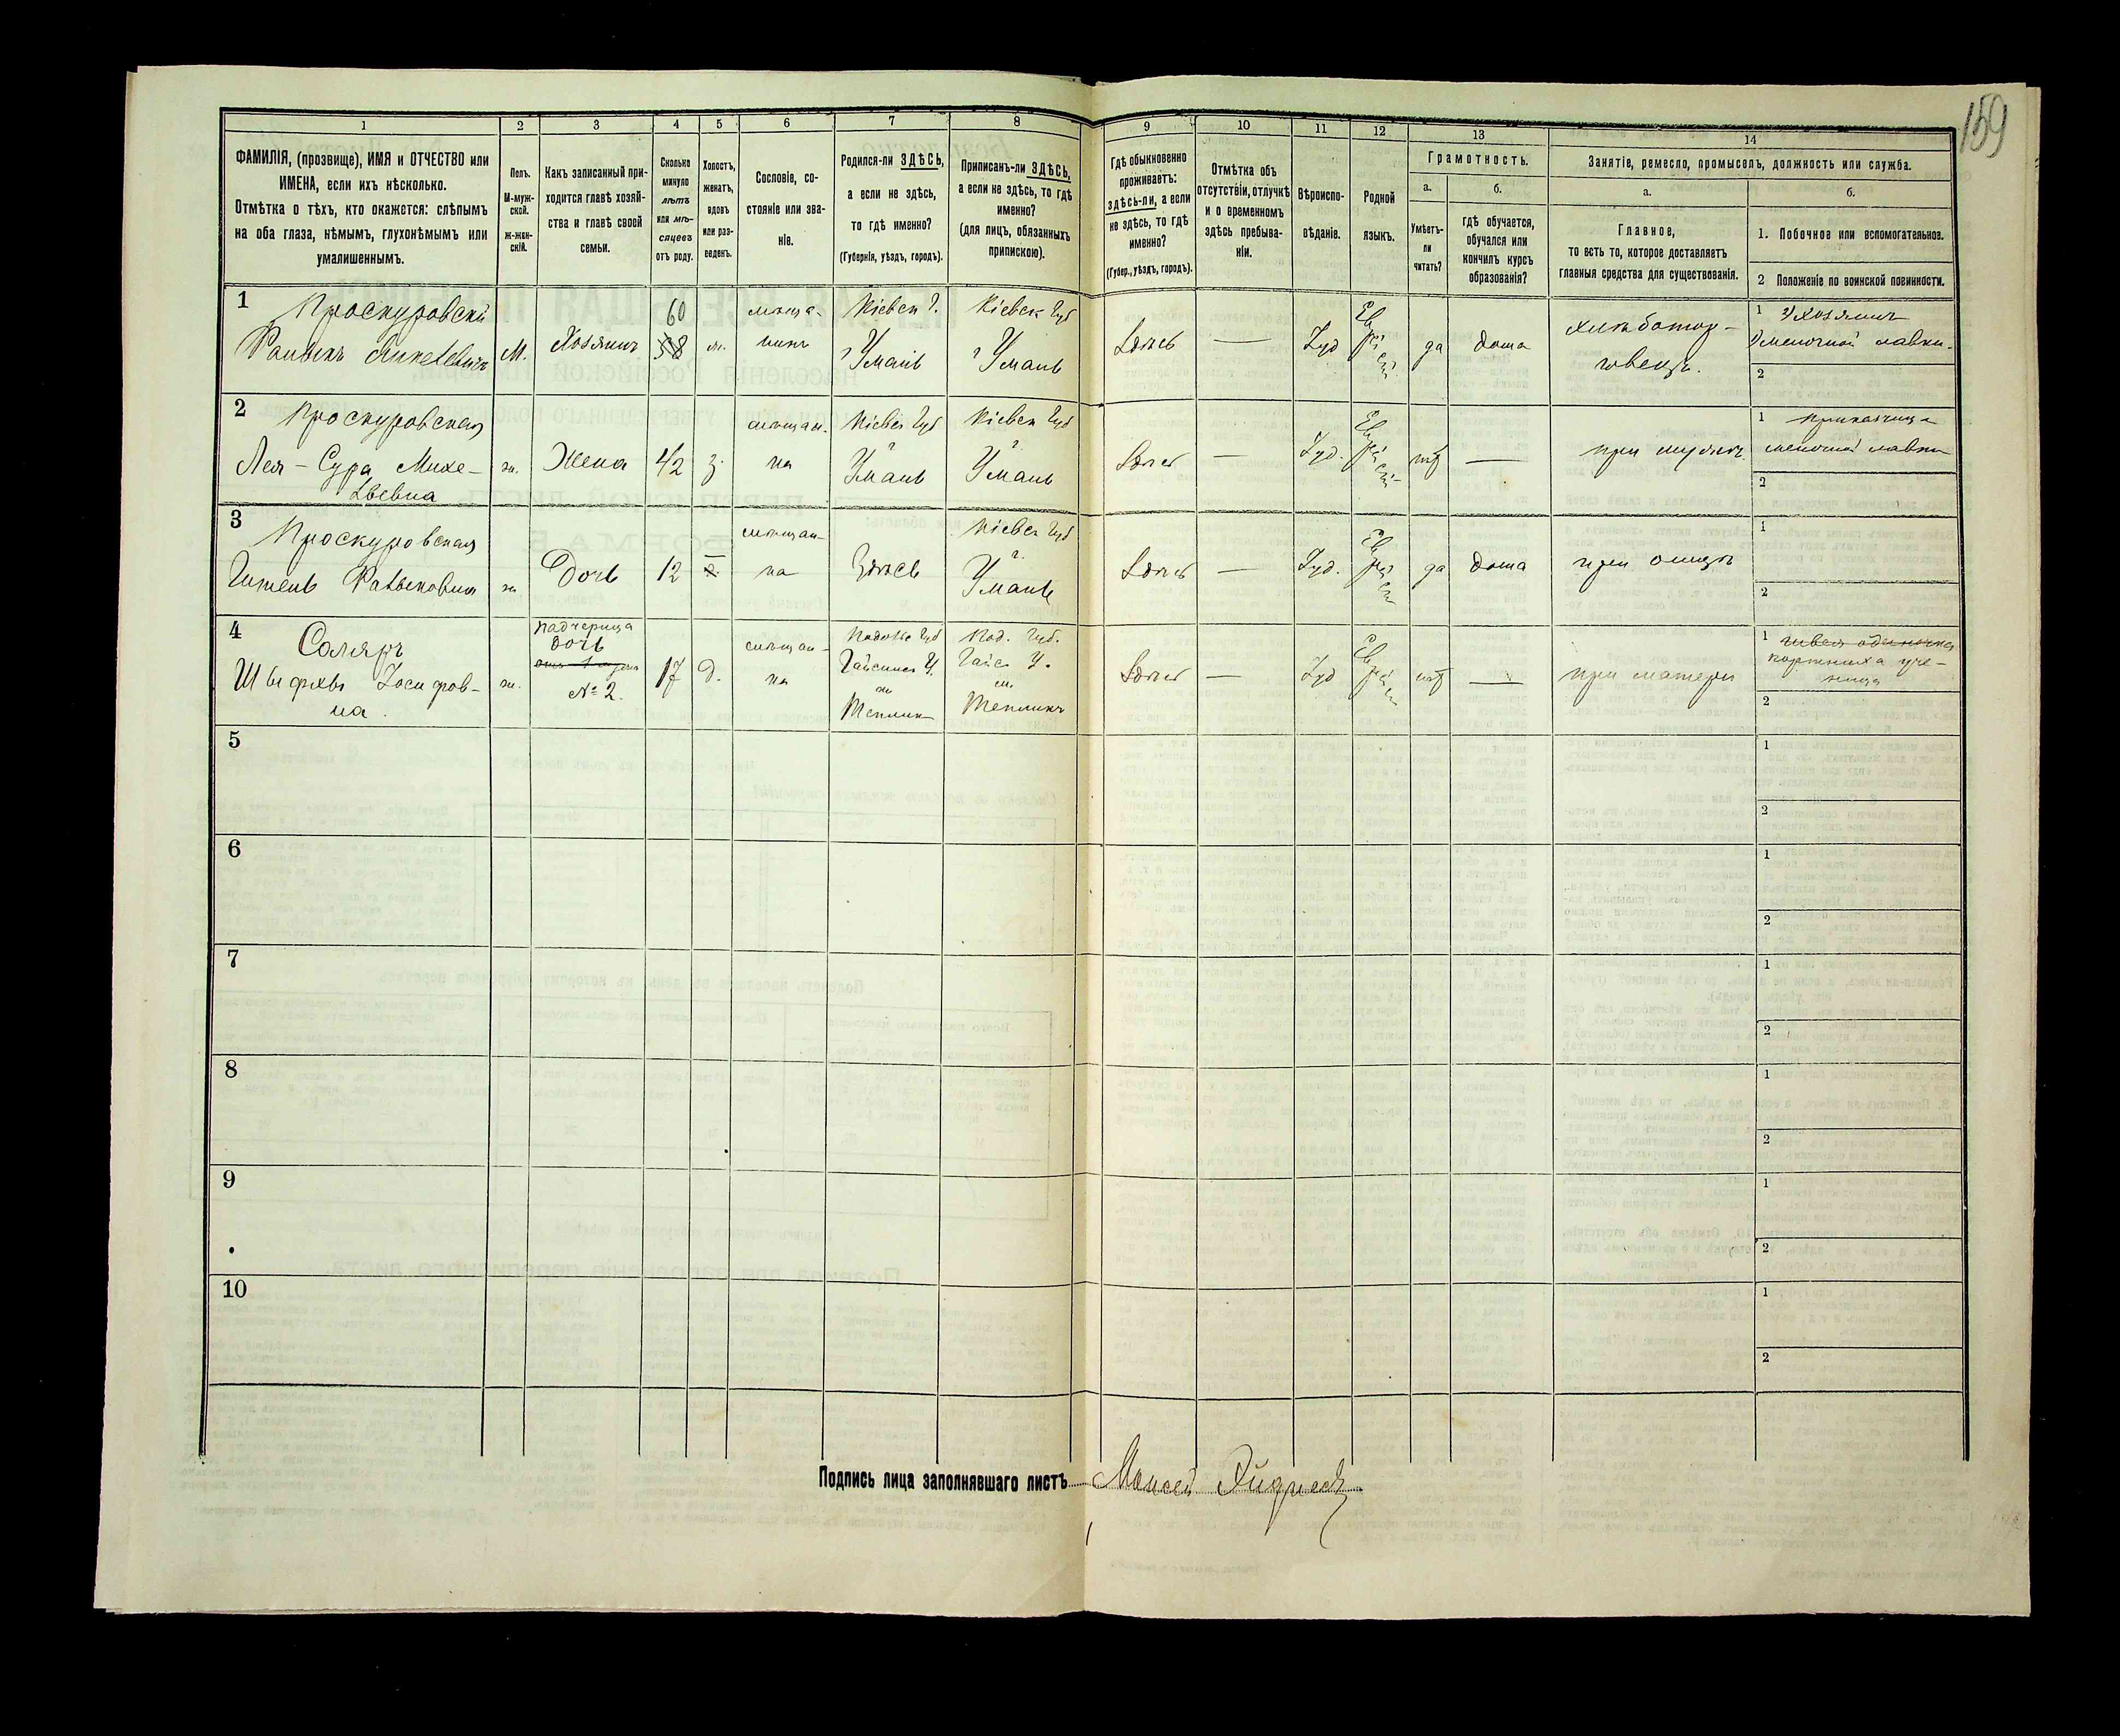 159
1 2 3 4 5 6 7 8 9 10 11 12 13 14
ФАМИЛІЯ, (прозвище), ИМЯ и ОТЧЕСТВО или
ИМЕНА, если ихъ нѣсколько.
Отмѣтка о тѣхъ, кто окажется: слѣпымъ
на оба глаза, нѣмымъ, глухонѣмымъ или
умалишеннымъ.
Полъ.
М-муж-
ской.
ж-жен-
скій.
Какъ записанный при-
ходится главѣ хозяй-
ства и главѣ своей
семьи.
Сколько
минуло
лѣтъ
или мѣ-
сяцевъ
отъ роду.
Холостъ,
женатъ,
вдовъ
или раз-
веденъ.
Сословіе, со-
стояніе или зва-
ніе.
Родился-ли ЗДѢСЬ,
а если не здѣсь,
то гдѣ именно?
(Губернія, уѣздъ, городъ).
Приписанъ-ли ЗДѢСЬ,
а если не здѣсь, то гдѣ
именно?
(для лицъ, обязанныхъ
припискою).
Гдѣ обыкновенно
проживаетъ:
здѣсь-ли, а если
не здѣсь, то гдѣ
именно?
(Губер., уѣздъ, городъ).
Отмѣтка объ
отсутствіи, отлучкѣ
и о временномъ
здѣсь пребыва-
ніи.
Вѣроиспо-
вѣданіе.
Родной
языкъ.
Грамотность.
а.
Умѣетъ-
ли
читать?
б.
гдѣ обучается,
обучался или
кончилъ курсъ
образованія?
Занятіе, ремесло, промыселъ, должность или служба.
а.
Главное,
то есть то, которое доставляетъ
главныя средства для существованія.
б.
1. Побочное или вспомогательное.
2 Положеніе по воинской повинности.
1
Проскуровскій
М.
Хозяинъ
60
58
мѣща-
нинъ
Кіевск Г.
г Умань
Кіевск Губ
г Умань
Здѣсь
—
Іуд
Еврейскі
да
дома
хлѣботор-
говецъ.
1 Хозяинъ
мелочной лавки.
2
2
Проскуровская
Лея-Сура Михе-
льевна
ж.
Жена
42
з.
мѣщан-
ка
Кіевск Губ
г
Умань
Кіевск Губ
г
Умань
Здѣсь
—
Іуд.
Еврейскі
нѣт
—
при мужѣ
1 приказчица
мелочной лавки
2
3
Проскуровская
ж
Дочь
12
мѣщан-
ка
Здѣсь
Кіевск Губ
г.
Умань
Здѣсь
—
Іуд.
Еврейскі
да
дома
при отцѣ
1
2
4
Соляръ
Іосифов-
на.
ж.
падчерица
дочь
№ 2.
17
д.
мѣщан-
ка
Подоль Губ
Гайсинск У.
м
Тепликъ
Под. Губ.
Гайс У.
м.
Тепликъ
Здѣсь
—
Іуд
Еврейск
нѣт
—
при матери
1
портниха уче-
ница
2
5
1
2
6
1
2
7
1
2
8
1
2
9
1
2
10
1
2
Подпись лица заполнявшаго листъ Моисей